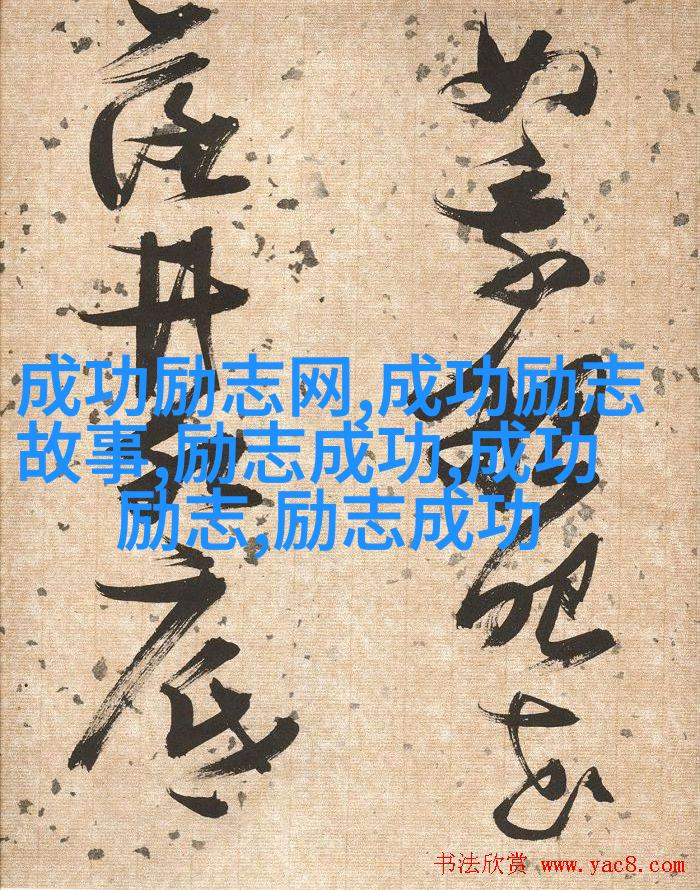 似乘船眼花
落井水底
成功励志网,成功励志
故事,励志成功,成功
励志,励志成功
书法欣赏 www.yac8.com